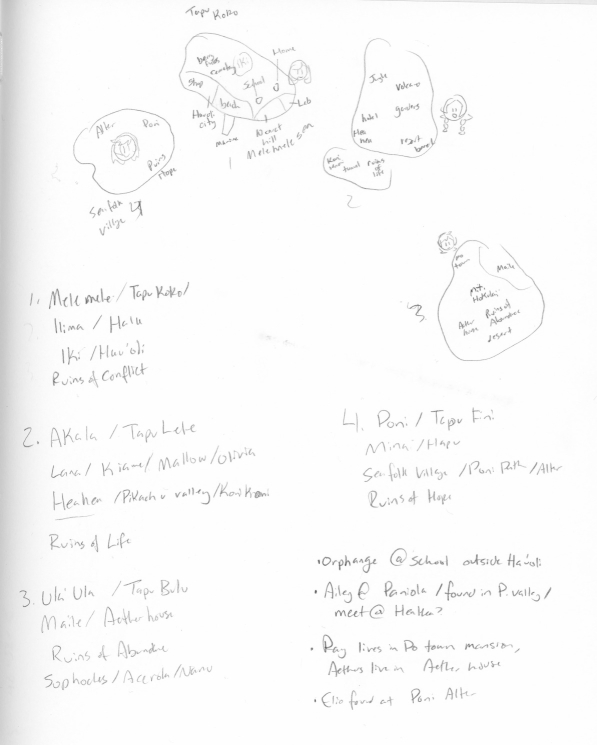 Tapu Koko
Home
Iki
School
Shop
beach
Lab
Hau'oli
city
marina
hill
1 Mele mele
Jungle
Volcano
hotel
gardens
Hea
hea
resort
Koni
Koni
tunnel
ruins
of
life
2
Alter
Poni
Ruins
Hope
Seafolk
Village
4
Po
town
Malie
Mt.
Hokulani
Aether
house
Ruins of
Abundance
desert
3
1. Mele mele / Tapu Koko /
Ilima / Hala
Iki / Hau'oli
Ruins of Conflict
2. Akala / Tapu Lele
Lana / Kiawe / Mallow / Olivia
Heahea / Pikachu valley / Konikoni
Ruins of Life
3. Ula'Ula / Tapu Bulu
Malie / Aether house
Ruins of Abundance
Sophocles / Acerola / Nanu
4. Poni / Tapu Fini
Mina / Hapu
Seafolk Village / Poni Path / Alter
Ruins of Hope
• Orphange @ school outside Hau'oli
• Ailey @ Paniola / found in P. valley /
meet @ Heahea?
• Ray lives in Po town mansion,
Aethers live in Aether house
• Elio found at Poni Alter